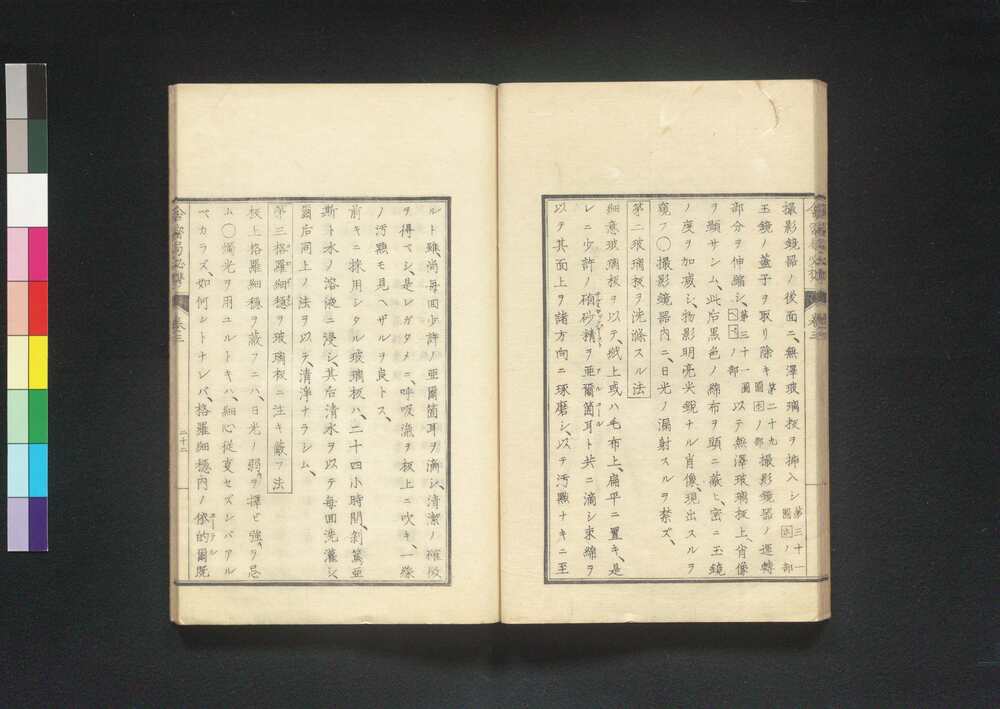 撮影鏡器ノ後面ニ、無澤玻璃板ヲ揷入シ第三十一圖ノ部
玉鏡ノ蓋子ヲ取リ除キ第二十九圖ノ部撮影鏡器ノ運轉
部分ヲ伸縮シ、第三十一圖ノ部以テ無澤玻璃板上、肖像
ヲ顯サシム、此后黒色ノ綿布ヲ頭ニ蔽ヒ、密ニ玉鏡
ノ度ヲ加减シ、物影明亮尖鋭ナル肖像、現出スルヲ
窺フ〇撮影鏡器内ニ、日光ノ漏射スルヲ禁ズ、
第二玻璃板ヲ洗滌スル法
細意玻璃板ヲ以テ、紙上或ハ毛布上、扁平ニ置キ、是
レニ少許ノ硇砂精ヲ亜爾箇耳ト共ニ滴シ束綿ヲ
以テ其面上ヲ諸方向ニ琢磨シ、以テ汚㸃ナキニ至
舎密局必携
卷三
ルト雖、尚毎囬少許ノ亜爾箇耳ヲ滴シ、清潔ノ確徴
ヲ得ベシ、是レガタメニ、呼吸㵝ヲ板上ニ吹キ、一㸃
ノ汚㸃モ見ヘザルヲ良トス、
前キニ採用シタル玻璃板ハ、二十四小時間、剥篤亜
斯ト水ノ溶液ニ浸シ、其后清水ヲ以テ毎囬洗滌シ、
爾后同上ノ法ヲ以テ、清淨ナラシム、
第三格羅細穩ヲ玻璃板ニ注キ蔽フ法
板上格羅細穩ヲ蔽フニハ、日光ノ弱ヲ擇ビ強ヲ忌
ム〇燭光ヲ用ユルトキハ、細心従㕝セズンバアル
ベカラズ、如何ントナレバ、格羅細穩内ノ依的爾既
舎密局必携
卷三
二十二